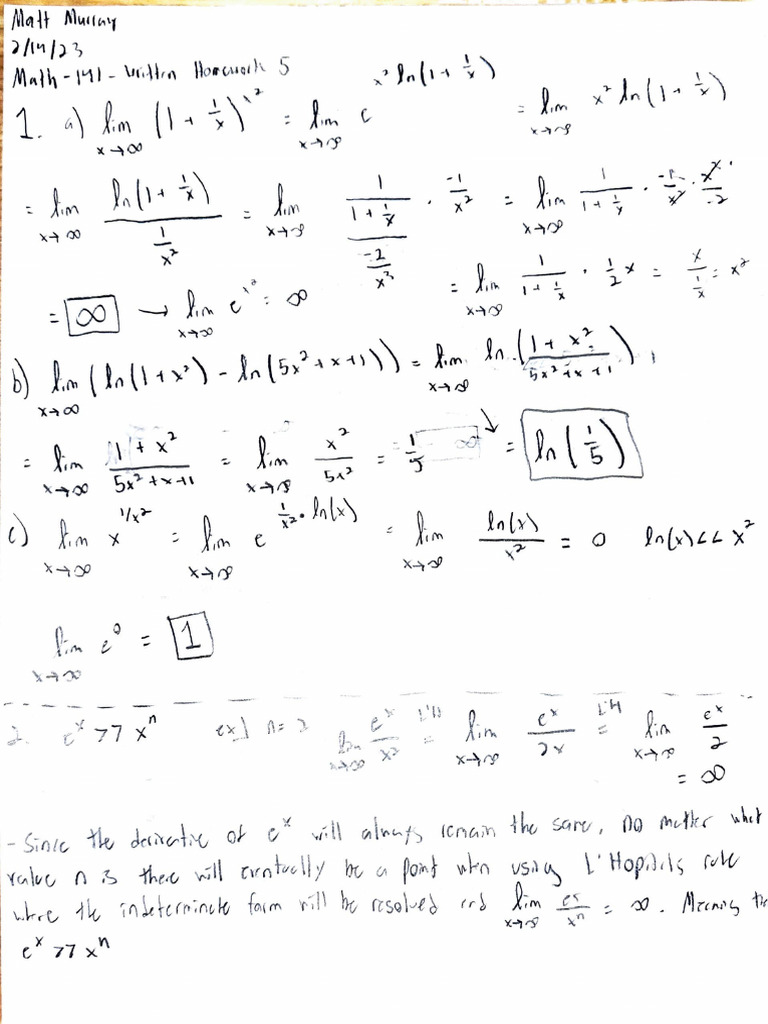 Matt Murray
2/14/23
Math-141-Written Homework 5
1. a) lim x→∞ (1 + 1/x)^x² = lim x→∞ e^(x² ln(1 + 1/x)) = lim x→∞ x² ln(1 + 1/x)
= lim x→∞ ln(1 + 1/x) / (1/x²) = lim x→∞ (1/(1 + 1/x) · -1/x²) / (-2/x³) = lim x→∞ 1/(1 + 1/x) · -1/x² · x³/-2
= lim x→∞ 1/(1 + 1/x) · 1/2 x = x/(1/x) = x²
= ∞ → lim x→∞ e^x² = ∞
b) lim x→∞ (ln(1+x²) - ln(5x²+x+1)) = lim x→∞ ln (1 + x² / 5x²+x+1)
= lim x→∞ 1 + x² / 5x²+x+1 = lim x→∞ x² / 5x² = 1/5 ∞ ↘ = ln(1/5)
c) lim x→∞ x^(1/x²) = lim x→∞ e^(1/x² · ln(x)) = lim x→∞ ln(x)/x² = 0 ln(x) << x²
lim x→∞ e^0 = 1
2. e^x >> x^n ex] n=2 lim x→∞ e^x/x² L'H = lim x→∞ e^x/2x L'H = lim x→∞ e^x/2
= ∞
- Since the derivative of e^x will always remain the same, no matter what
value n is there will eventually be a point when using L'Hopitals rule
where the indeterminate form will be resolved and lim x→∞ e^x/x^n = ∞. Meaning
e^x >> x^n